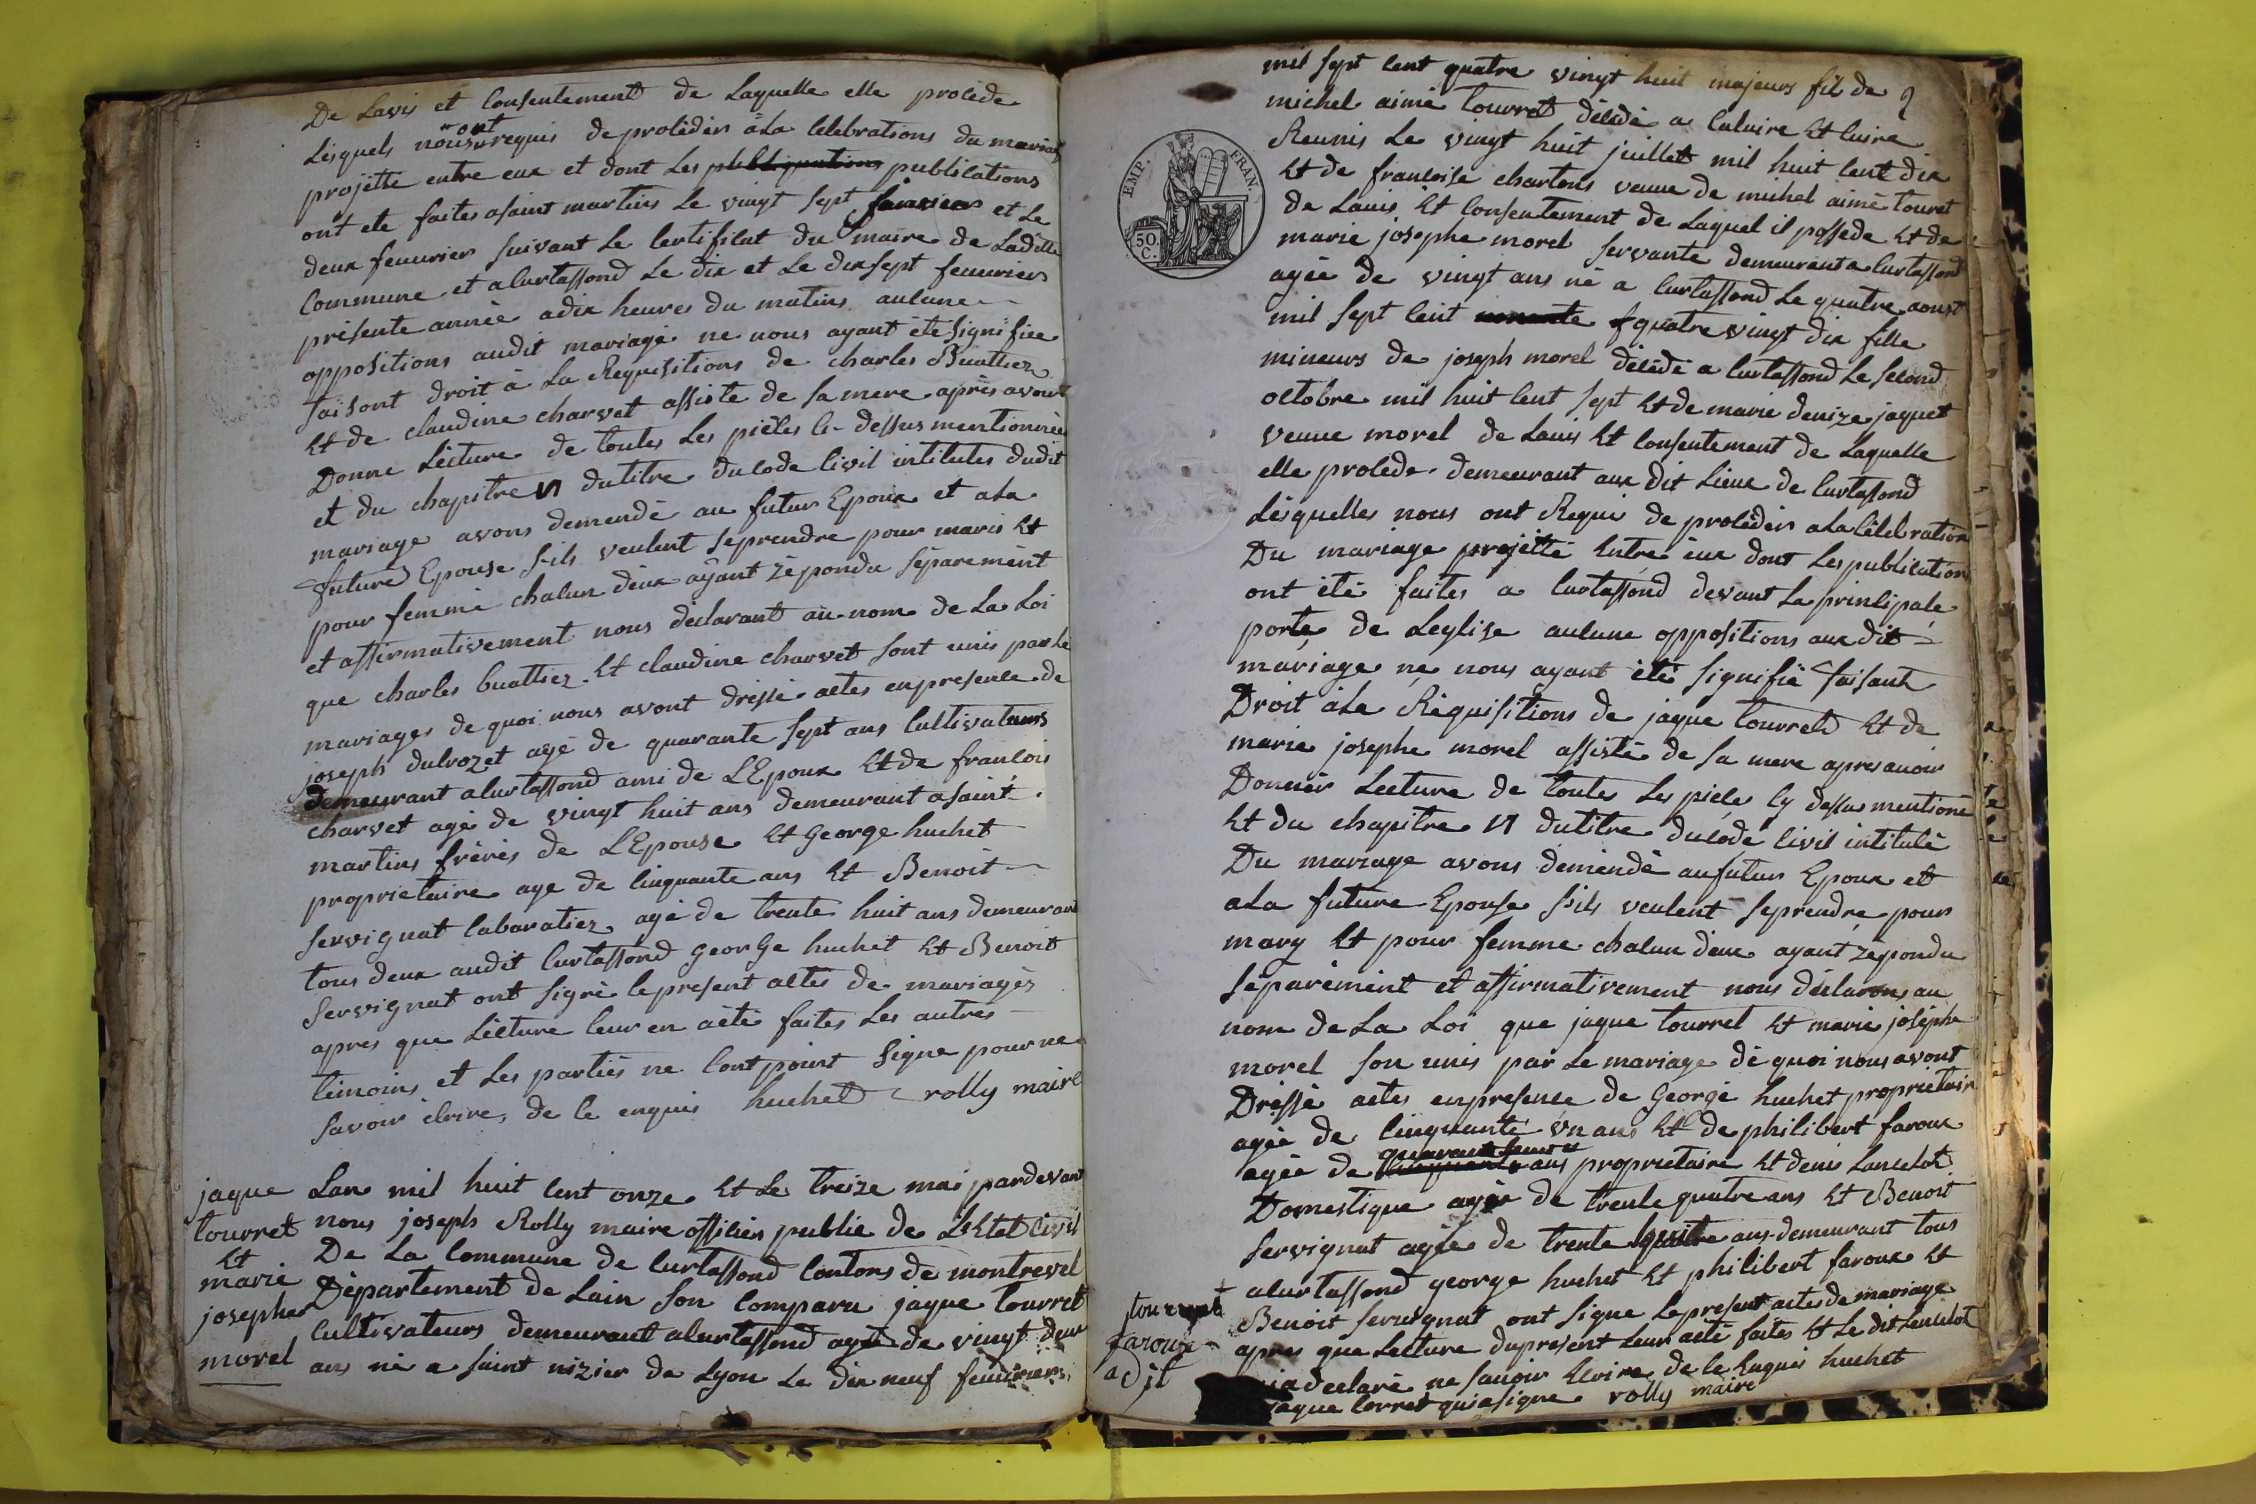 De Lavis et Consentement de Laquelle elle procède
Lesquels nous ont requis de proceder à La Celebrations du mariage
projette entre eux et dont Les publications
ont ete faites a saint martins Le vingt sept et Le
deux feuvriers suivant Le Certificat du maire de Ladille
Commune et a Curtassond Le dix et Le dix sept feuvriers
présente année a dix heures du matins aucune
oppositions audit mariage ne nous ayant été Signifiée
faisont droit à La Requisitions de charles Buattiez
Et de claudine charvet assiste de sa mere après avoir
Donne Lécture de toutes Les pièces Ci-dessus mentionnée
et du chapitre VI du titre du Code Civil intitules dudit
mariage avons demendé au futur Epoux et a La
future Epouse s-ils veulent se prendre pour maris Et
pour femme chacun deux ayant répondu séparément
et affirmativement nous déclarant au nom de La Loi
que charles buattiez Et claudine charvet sont unis par Le
mariages de quoi nous avont dressé actes en presence de
joseph dulrozet agé de quarante sept ans Cultivateurs
demeurant a Curtassond ami de L'Epoux Et de francois
charvet agé de vingt huit ans demeurant a saint
martins frères de L'Epouse Et George huchet
proprietaire age de Cinquante ans Et Benoit
Servignat Cabaratiez agé de trente huit ans demeurant
tous deux audit Curtassond George huchet Et Benoit
Servignat ont Signé le present actes de mariages
apres que Lécture leur en aété faites Les autres
temoins et Les parties ne Lont point Signe pour ne
Savoir écrire, de ce enquis huchet rolly maire
jaque
tourret
Et
marie
josephe
morel
Lan mil huit cent onze Et Le treize mai pardevant
nous joseph Rolly maire officier public de L'Etat Civil
De La Commune de Curtassond Contons de montrevel
Département de Lain son Comparu jaque tourret
Cultivateurs demeurant a Curtassond agé de vingt deux
ans né a saint nizier de Lyon Le dix neuf feuvriers
mil sept cent quatre vingt huit majeurs fil de
michel aimé tourret décédé a Caluire Et Cuire
Reunis Le vingt huit juillet mil huit cent dix
Et de francoise chartons veuve de michel aimé touret
de Lavis Et Consentement de Laquel il possede Et de
marie josephe morel servante demeurant a Curtassond
agée de vingt ans né a Curtassond Le quatre aoust
mil sept cent quatre vingt dix fille
mineurs de joseph morel décédé a Curtassond Le second
octobre mil huit cent sept Et de marie denize jaquet
veuve morel de Lavis Et Consentement de Laquelle
elle procede demeurant aux Dit Lieux de Curtassond
Lesquelles nous ont Requi de procéder a La Célébration
Du mariage projetté Entre eux dont Les publications
ont été faites a Curtassond devant La principale
porte de Leglise aucune oppositions aux dit
mariage ne nous ayant été signifié faisant
Droit a La Réquisitions de jaque tourret Et de
marie josephe morel assisté de sa mere apres avoir
Donnér Lecture de toutes Les pieces Cy dessus mentioné
Et du chapitre VI du titre du Code Civil intitulé
Du mariage avons demendé au futur Epoux et
a La future Epouse s'ils veulent se prendre pour
mary Et pour femme chacun deux ayant répondu
séparément et affirmativement nous déclarons au
nom de La Loi que jaque tourret Et marie joséphe
morel son unis par Le mariage de quoi nous avont
Dréssé actes en presence de George huchet propriétaire
agée de Cinquante un ans Et de philibert faroux
agée de ans proprietaire Et denis Lancelot
Domestique agée de trente quatre ans Et Benoit
Servignat agée de trente huit ans demeurant tous
a Curtassond george huchet Et philibert faroux Et
Benoit Servignat ont signe Le present actes de mariage
apres que Lecture du present Leur aété faites Et Le dit Lancelot
a declaré ne savoir Ecrire de ce Enquis huchet
jaque torret qui a signe rolly maire
tourret
faroux
adjt
EMP. FRAN.
50.
C.